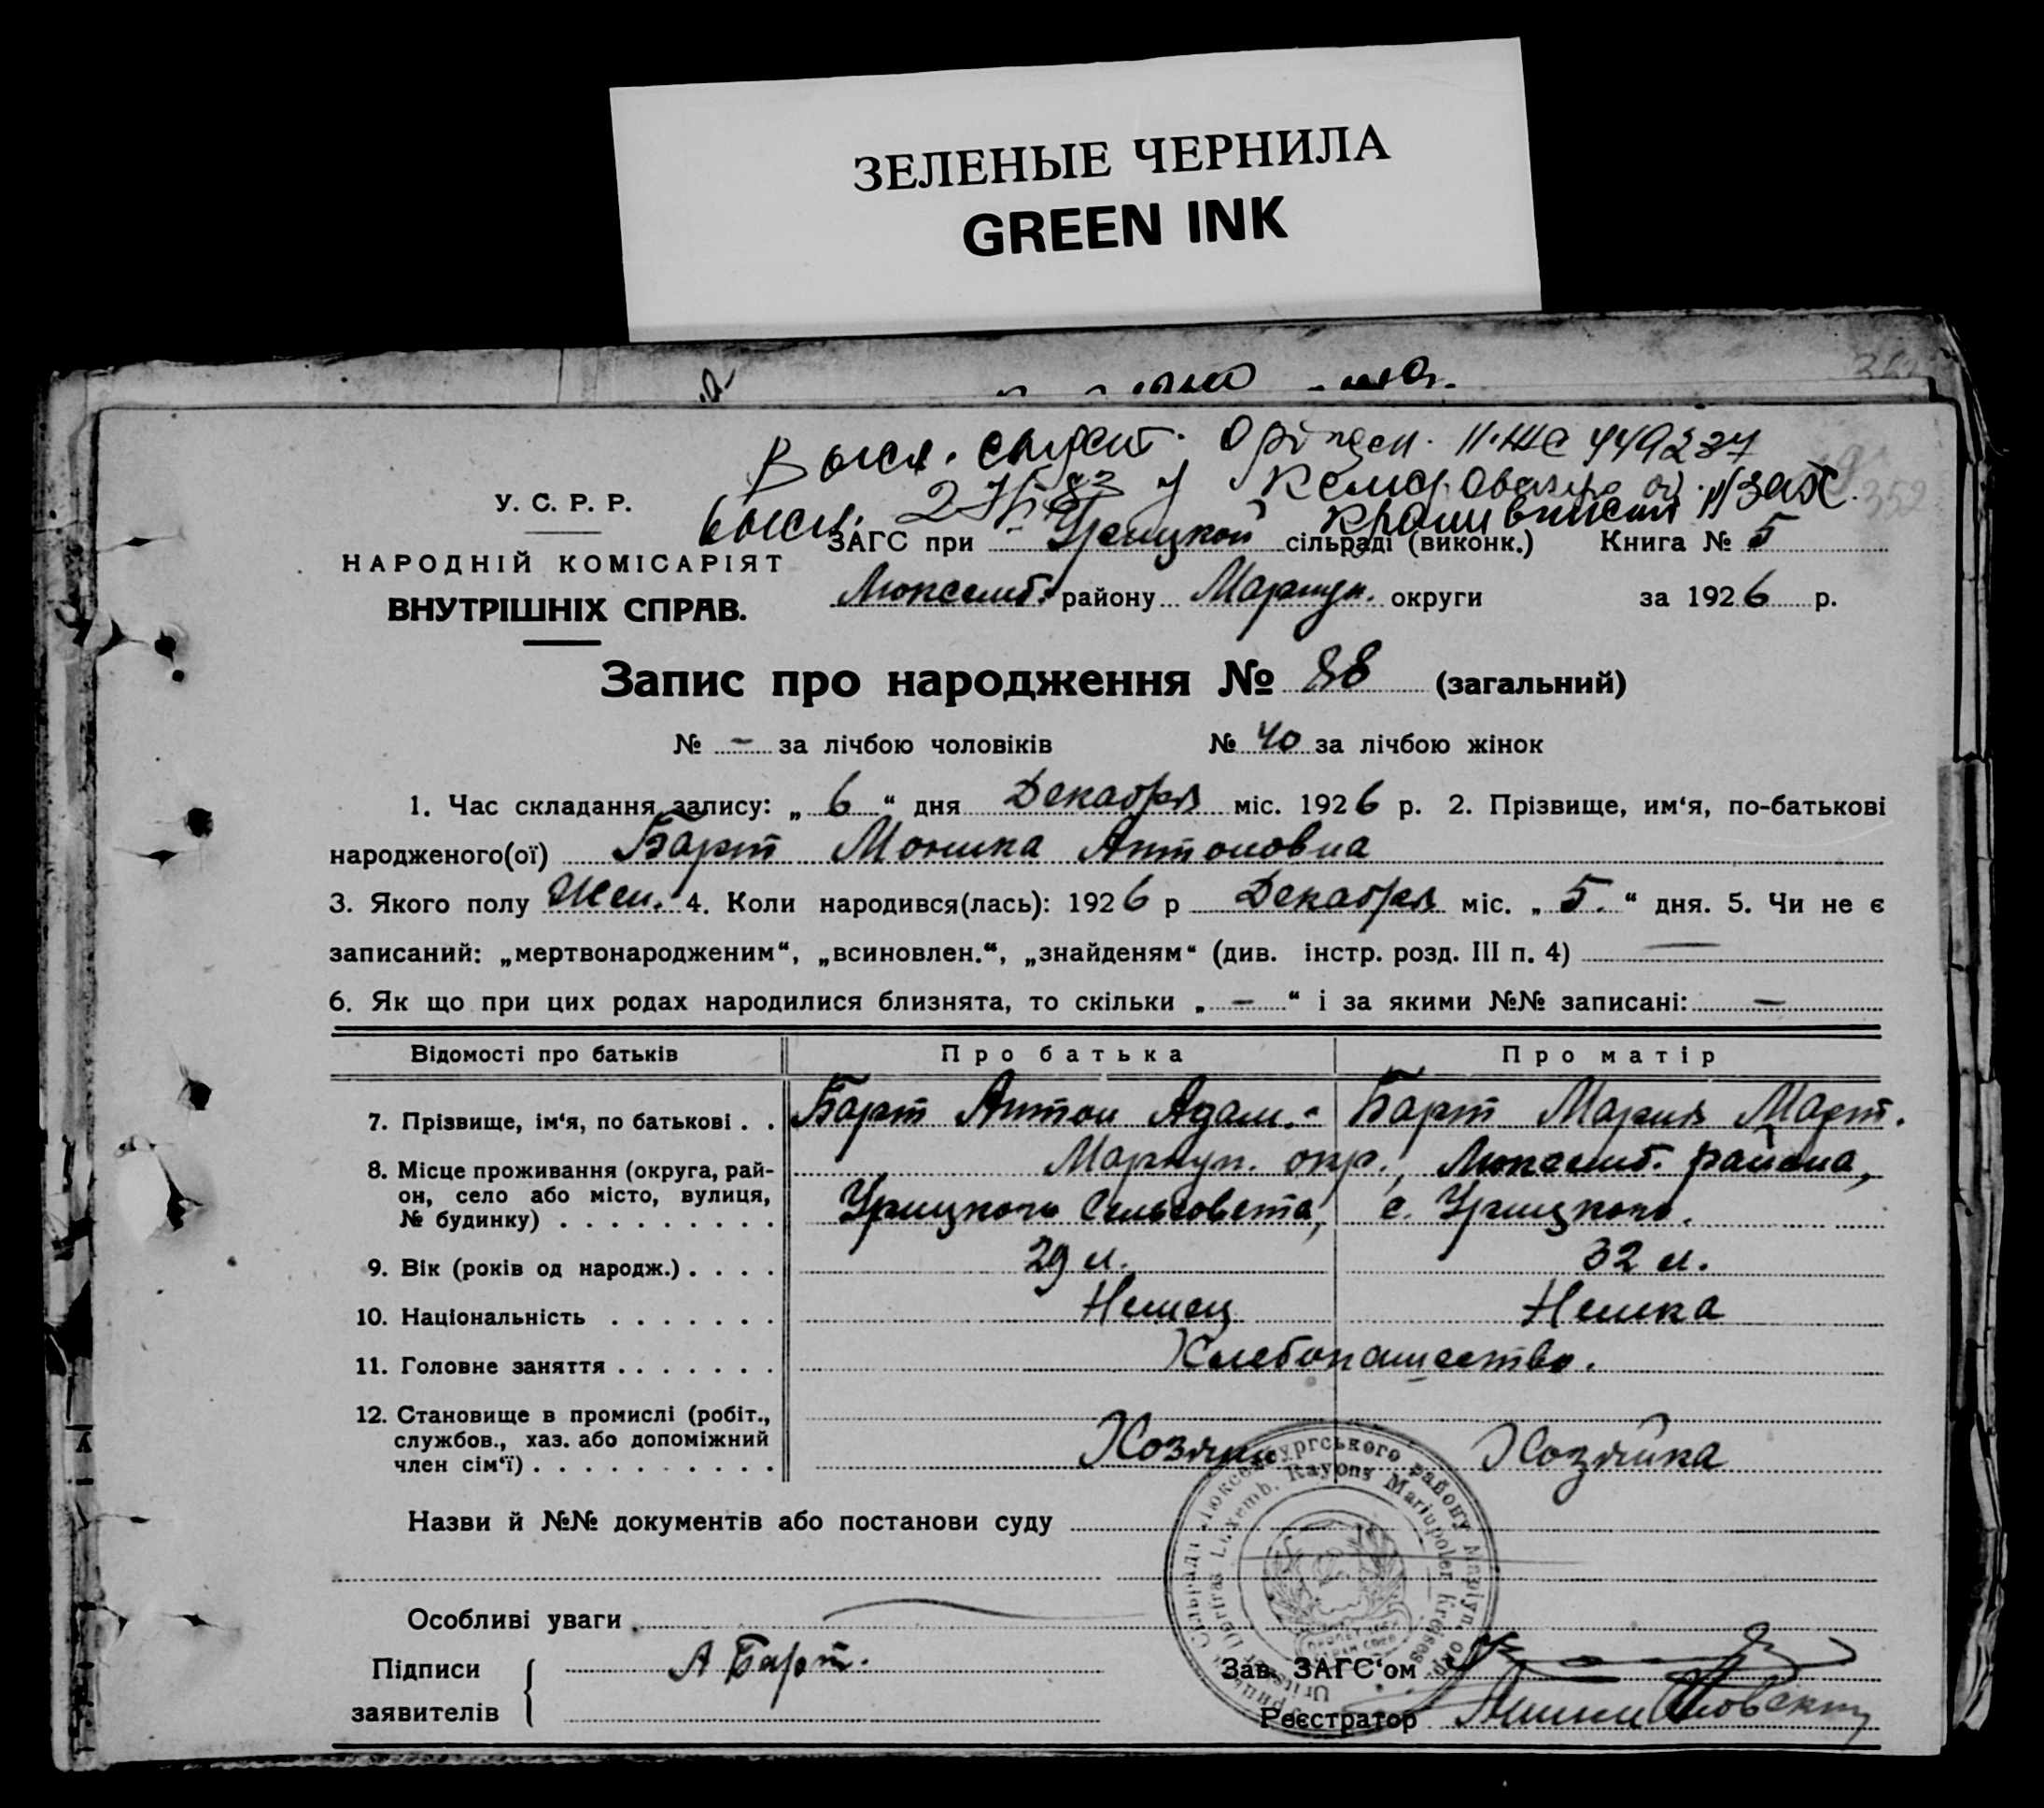 ЗЕЛЕНЫЕ ЧЕРНИЛА
GREEN INK
352
У. С. Р. Р.
НАРОДНІЙ КОМІСАРІЯТ
ВНУТРІШНІХ СПРАВ.
ЗАГС при Урицкой сільраді (виконк.) Книга № 5
Люксемб. району Мариуп. округи за 1926 р.
Запис про народження № 88 (загальний)
№ - за лічбою чоловіків № 40 за лічбою жінок
1. Час складання запису: „ 6 “ дня Декабря міс. 1926 р. 2. Прізвище, им‘я, по-батькові
народженого(ої) Барт Моника Антоновна
3. Якого полу Жен. 4. Коли народився(лась): 1926 р Декабря міс. „ 5. “ дня. 5. Чи не є
записаний: „мертвонародженим“, „всиновлен.“, „знайденям“ (див. інстр. розд. III п. 4) —
6. Як що при цих родах народилися близнята, то скільки „ – “ і за якими №№ записані: –
Відомості про батьків Про батька Про матір
7. Прізвище, ім‘я, по батькові . . Барт Антон Адам. Барт Мария Март.
8. Місце проживання (округа, рай- Мариуп. окр., Люксемб. района,
он, село або місто, вулиця, Урицкого Сельсовета, с. Урицкого.
№ будинку) . . . . . . . . .
9. Вік (років од народж.) . . . . 29 л. 32 л.
10. Національність . . . . . . . Немец Немка
11. Головне заняття . . . . . . . Хлебопашество.
12. Становище в промислі (робіт.,
службов., хаз. або допоміжний
член сім‘ї) . . . . . . . . . . Хозяин Хозяйка
Назви й №№ документів або постанови суду
Особливі уваги
Підписи А Барт. Зав. ЗАГС‘ом
заявителів Реєстратор